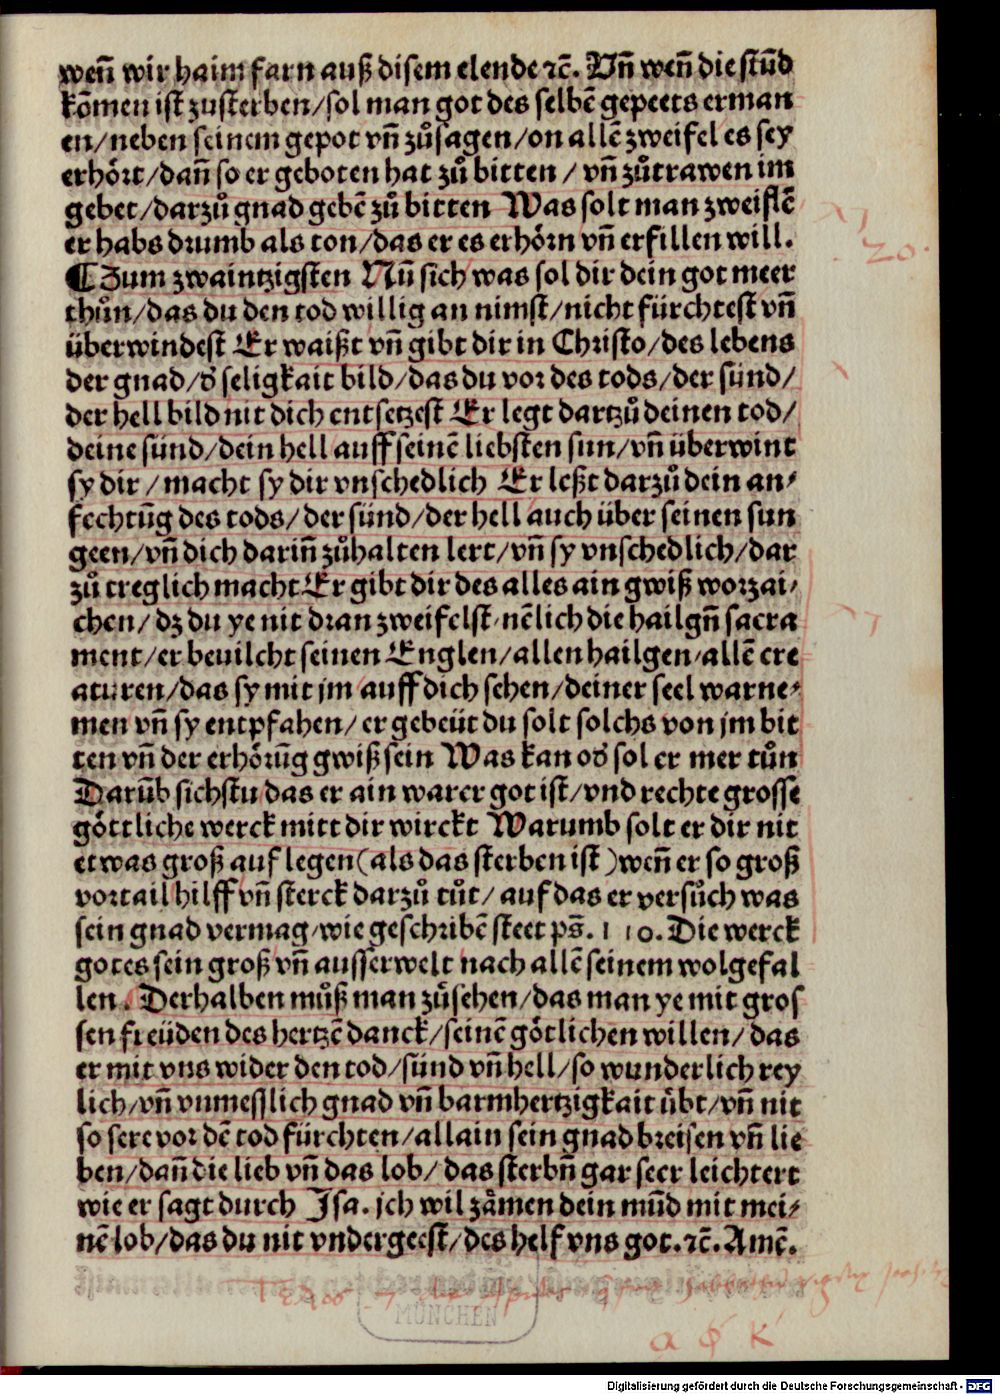 weñ wir haim farn auß disem elende ꝛc̄. Vñ weñ die stūd
kōmen ist zusterben/sol man got des selbē gepeets erman
en/neben seinem gepot vñ zůsagen/on allē zweifel es sey
erhört/dañ so er geboten hat zů bitten / vñ zůtrawen im
gebet/darzů gnad gebē zů bitten Was solt man zweiflē
er habs drumb als ton/das er es erhörn vñ erfillen will.
¶ Zum zwaintzigsten Nū sich was sol dir dein got meer
thůn/das du den tod willig an nimst/nicht fürchtest vñ
überwindest Er waißt vñ gibt dir in Christo/des lebens
der gnad/d̄ seligkait bild/das du vor des tods/der sünd/
der hell bild nit dich entsetzest Er legt dartzů deinen tod/
deine sünd/dein hell auff seinē liebsten sun/vñ überwint
sy dir / macht sy dir vnschedlich Er leßt darzů dein an⸗
fechtūg des tods/der sünd/der hell auch über seinen sun
geen/vñ dich dariñ zůhalten lert/vñ sy vnschedlich/dar
zů treglich macht Er gibt dir des alles ain gwiß worzai⸗
chen/ dz du ye nit dran zweifelst/nēlich die hailgñ sacra
ment/er beuilcht seinen Englen/allen hailgen/allē cre
aturen/das sy mit jm auff dich sehen/deiner seel warne⸗
men vñ sy entpfahen/ er gebeüt du solt solchs von jm bit
ten vñ der erhörūg gwiß sein Was kan od̄ sol er mer tůn
Darūb sichstu das er ain warer got ist/vnd rechte grosse
göttliche werck mitt dir wirckt Warumb solt er dir nit
etwas groß auf legen(als das sterben ist )weñ er so groß
vortail hilff vñ sterck darzů tůt/ auf das er versůch was
sein gnad vermag/wie geschribē steet ps̄. 110. Die werck
gotes sein groß vñ ausserwelt nach allē seinem wolgefal
len. Derhalben můß man zůsehen/das man ye mit gros
sen freüden des hertzē danck/seinē götlichen willen/ das
er mit vns wider den tod/sünd vñ hell/so wunderlich rey
lich/vñ vnmesslich gnad vñ barmhertzigkait übt/vñ nit
so sere vor dē tod fürchten/allain sein gnad breisen vñ lie
ben/dañ die lieb vñ das lob/ das sterbñ gar seer leichtert
wie er sagt durch Isa. ich wil zämen dein mūd mit mei⸗
nē lob/das du nit vndergeest/des helf vns got.ꝛc̄. Amē.
20.
MÜNCHEN
Digitalisierung gefördert durch die Deutsche Forschungsgemeinschaft - DFG